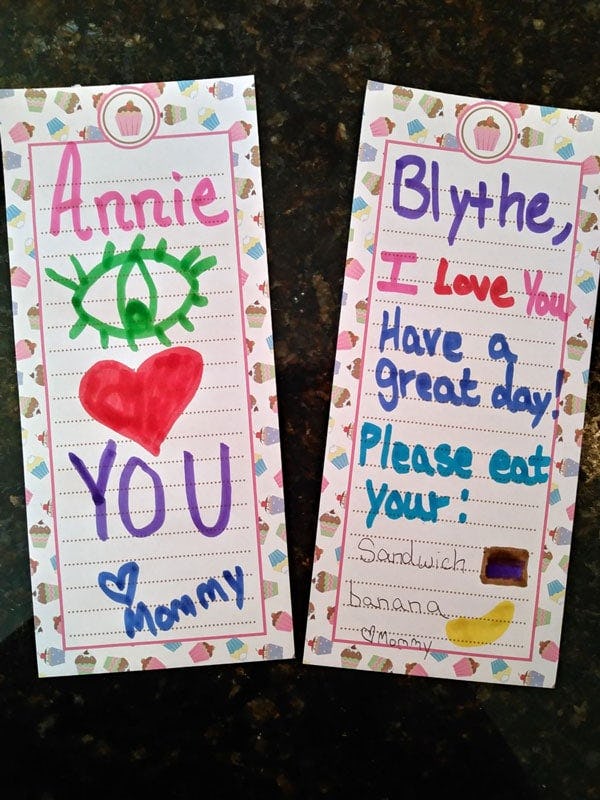 Annie
YOU
Mommy
Blythe,
I Love You
Have a
great day!
Please eat
your:
Sandwich
banana
Mommy